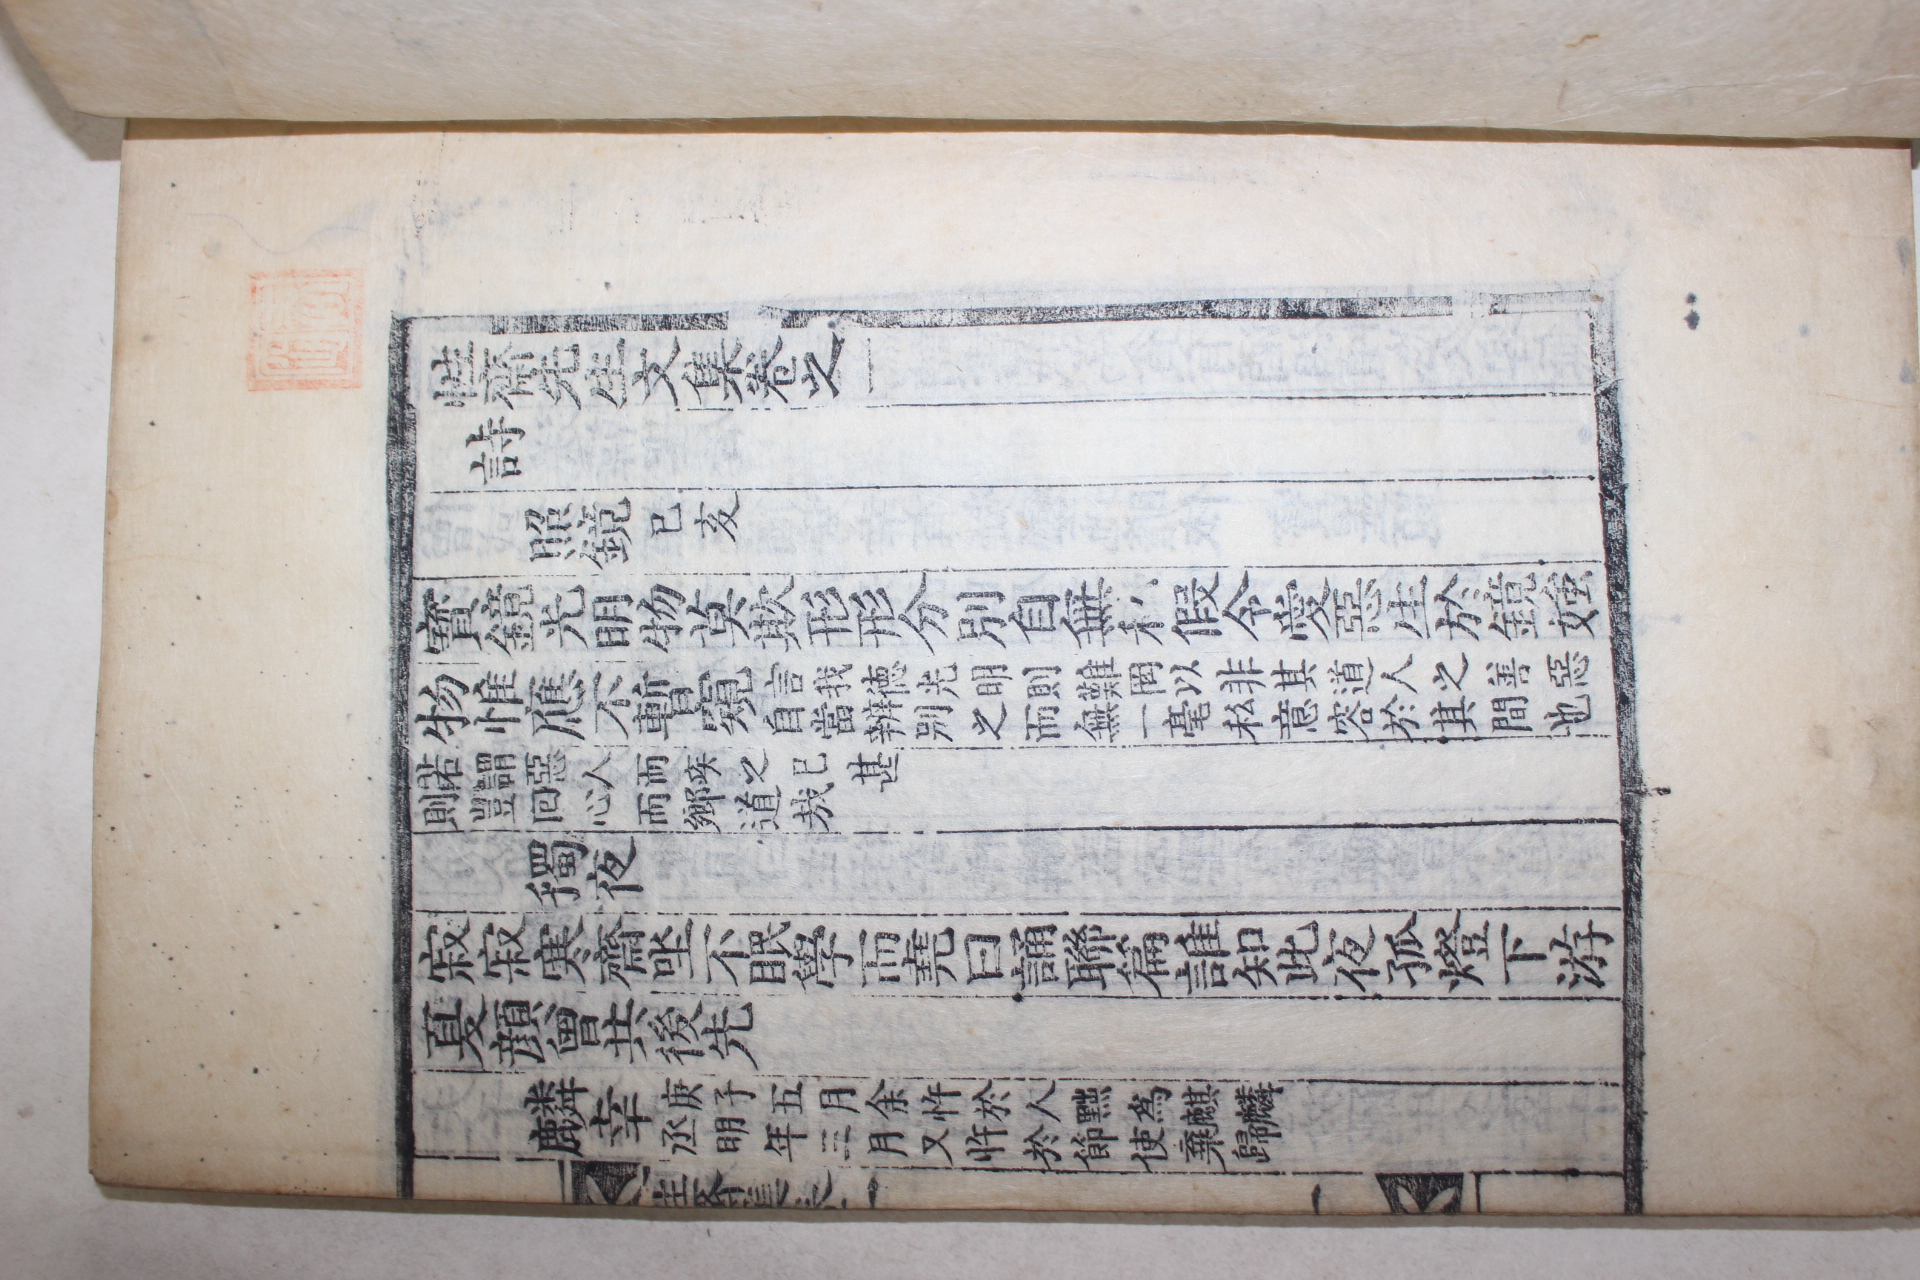 性齋先生文集卷之一
詩
照鏡 己亥
寶鏡光明物莫欺形形分別自無私假令愛惡生於鏡媸
物惟應不暫窺
言我德光明則難罔以非其道人之善惡
自當辨別之而無一毫私意容於其間也
若謂惡人而疾之已甚
則豈回心而鄉道哉
獨夜
寂寂寒齋坐不眠學而堯曰誦聯篇誰知此夜孤燈下游
夏顔曾共後先
麟幸
庚子五月余忤於人黜爲麒麟
丞明年三月又忤於節使棄歸
性齋集卷一
一